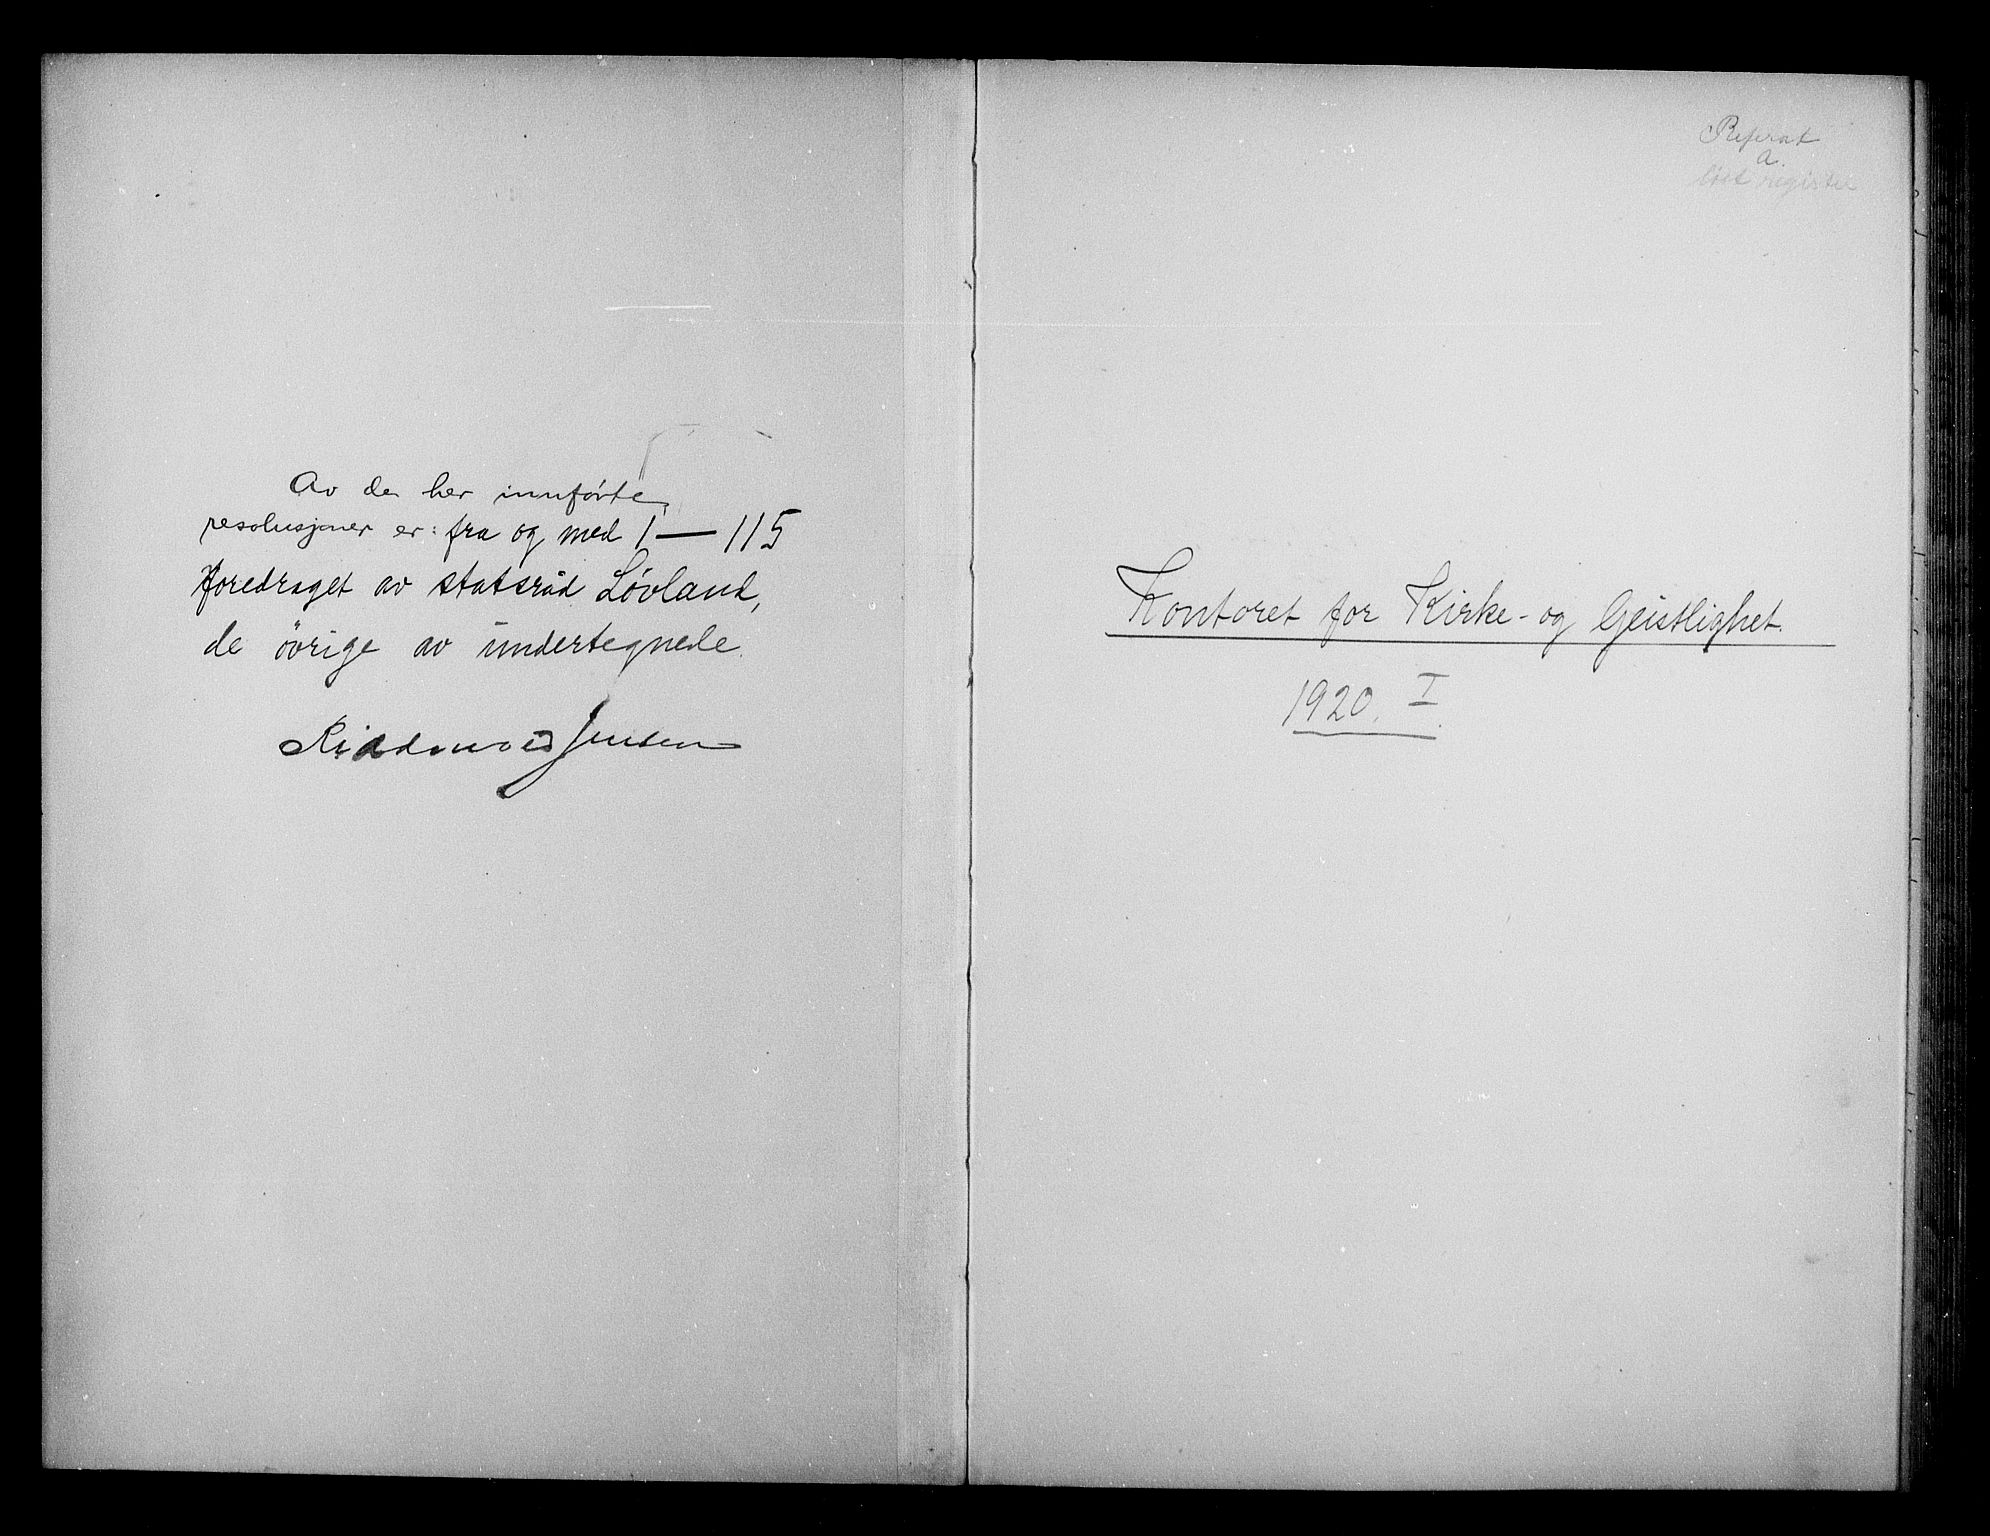 Av de her innførte
resolusjoner er: fra og med 1 — 115
foredraget av statsråd Løvland,
de övrige av undertegnede.
Riddervold Jensen
Referat
a.
løst register
Kontoret for Kirke- og Geistlighet.
1920. I.